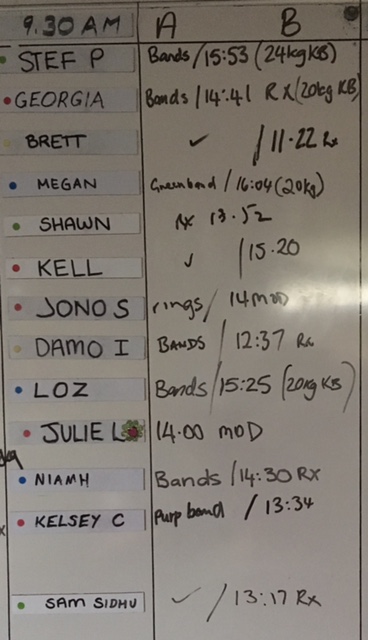 9.30 AM A B
STEF P Bands / 15:53 (24kg KB)
GEORGIA Bands / 14:41 RX (20kg KB)
BRETT ✓ / 11.22 Rx
MEGAN Green band / 16:04 (20kg)
SHAWN Rx 13.52
KELL ✓ / 15.20
JONO S rings / 14 MOD
DAMO I BANDS / 12:37 Rx
LOZ Bands / 15:25 (20kg KB)
JULIE L 14.00 MOD
NIAMH Bands / 14:30 RX
KELSEY C Purp band / 13:34
SAM SIDHU ✓ / 13:17 Rx